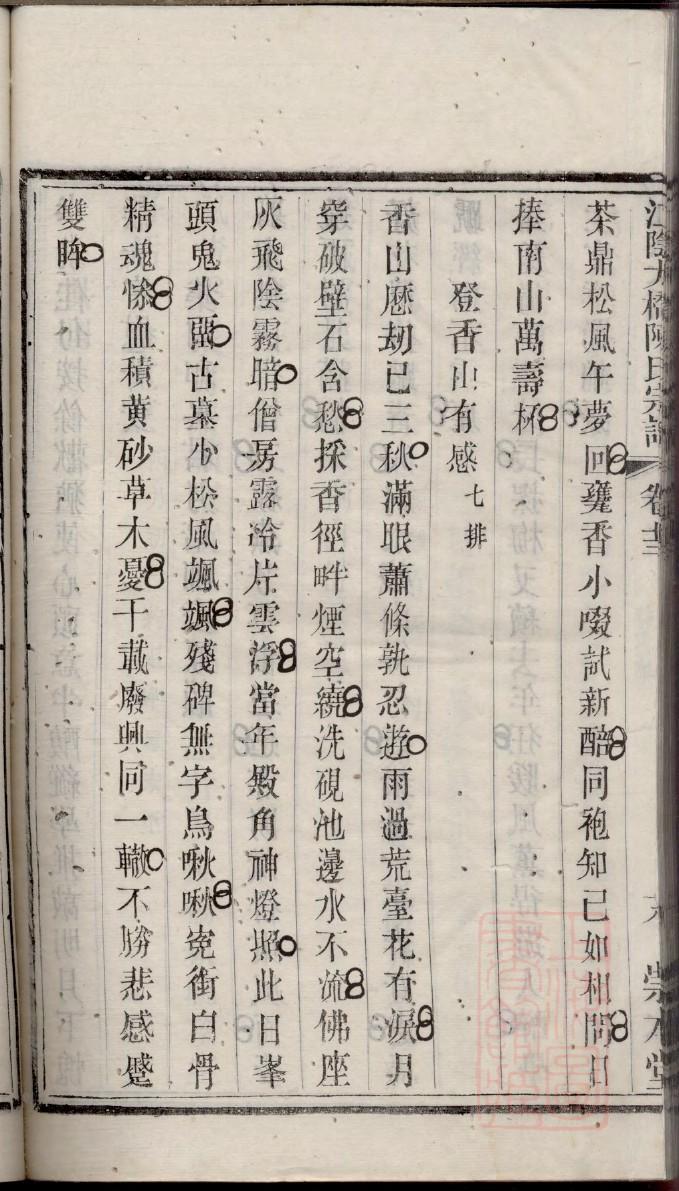 江陰九橋陳氏宗譜 卷十二 崇本堂
茶鼎松風午夢回甕香小啜試新醅同袍知已如相問日
捧南山萬壽杯
登香山有感 七排
香山歷劫已三秋滿眼蕭條孰忍遊雨過荒臺花有淚月
穿破壁石含愁採香徑畔煙空繞洗硯池邊水不流佛座
灰飛陰霧暗僧房露冷片雲浮當年殿角神燈照此日峯
頭鬼火幽古墓少松風颯颯殘碑無字鳥啾啾寃銜白骨
精魂慘血積黄砂草木憂千載廢興同一轍不勝悲感蹙
雙眸